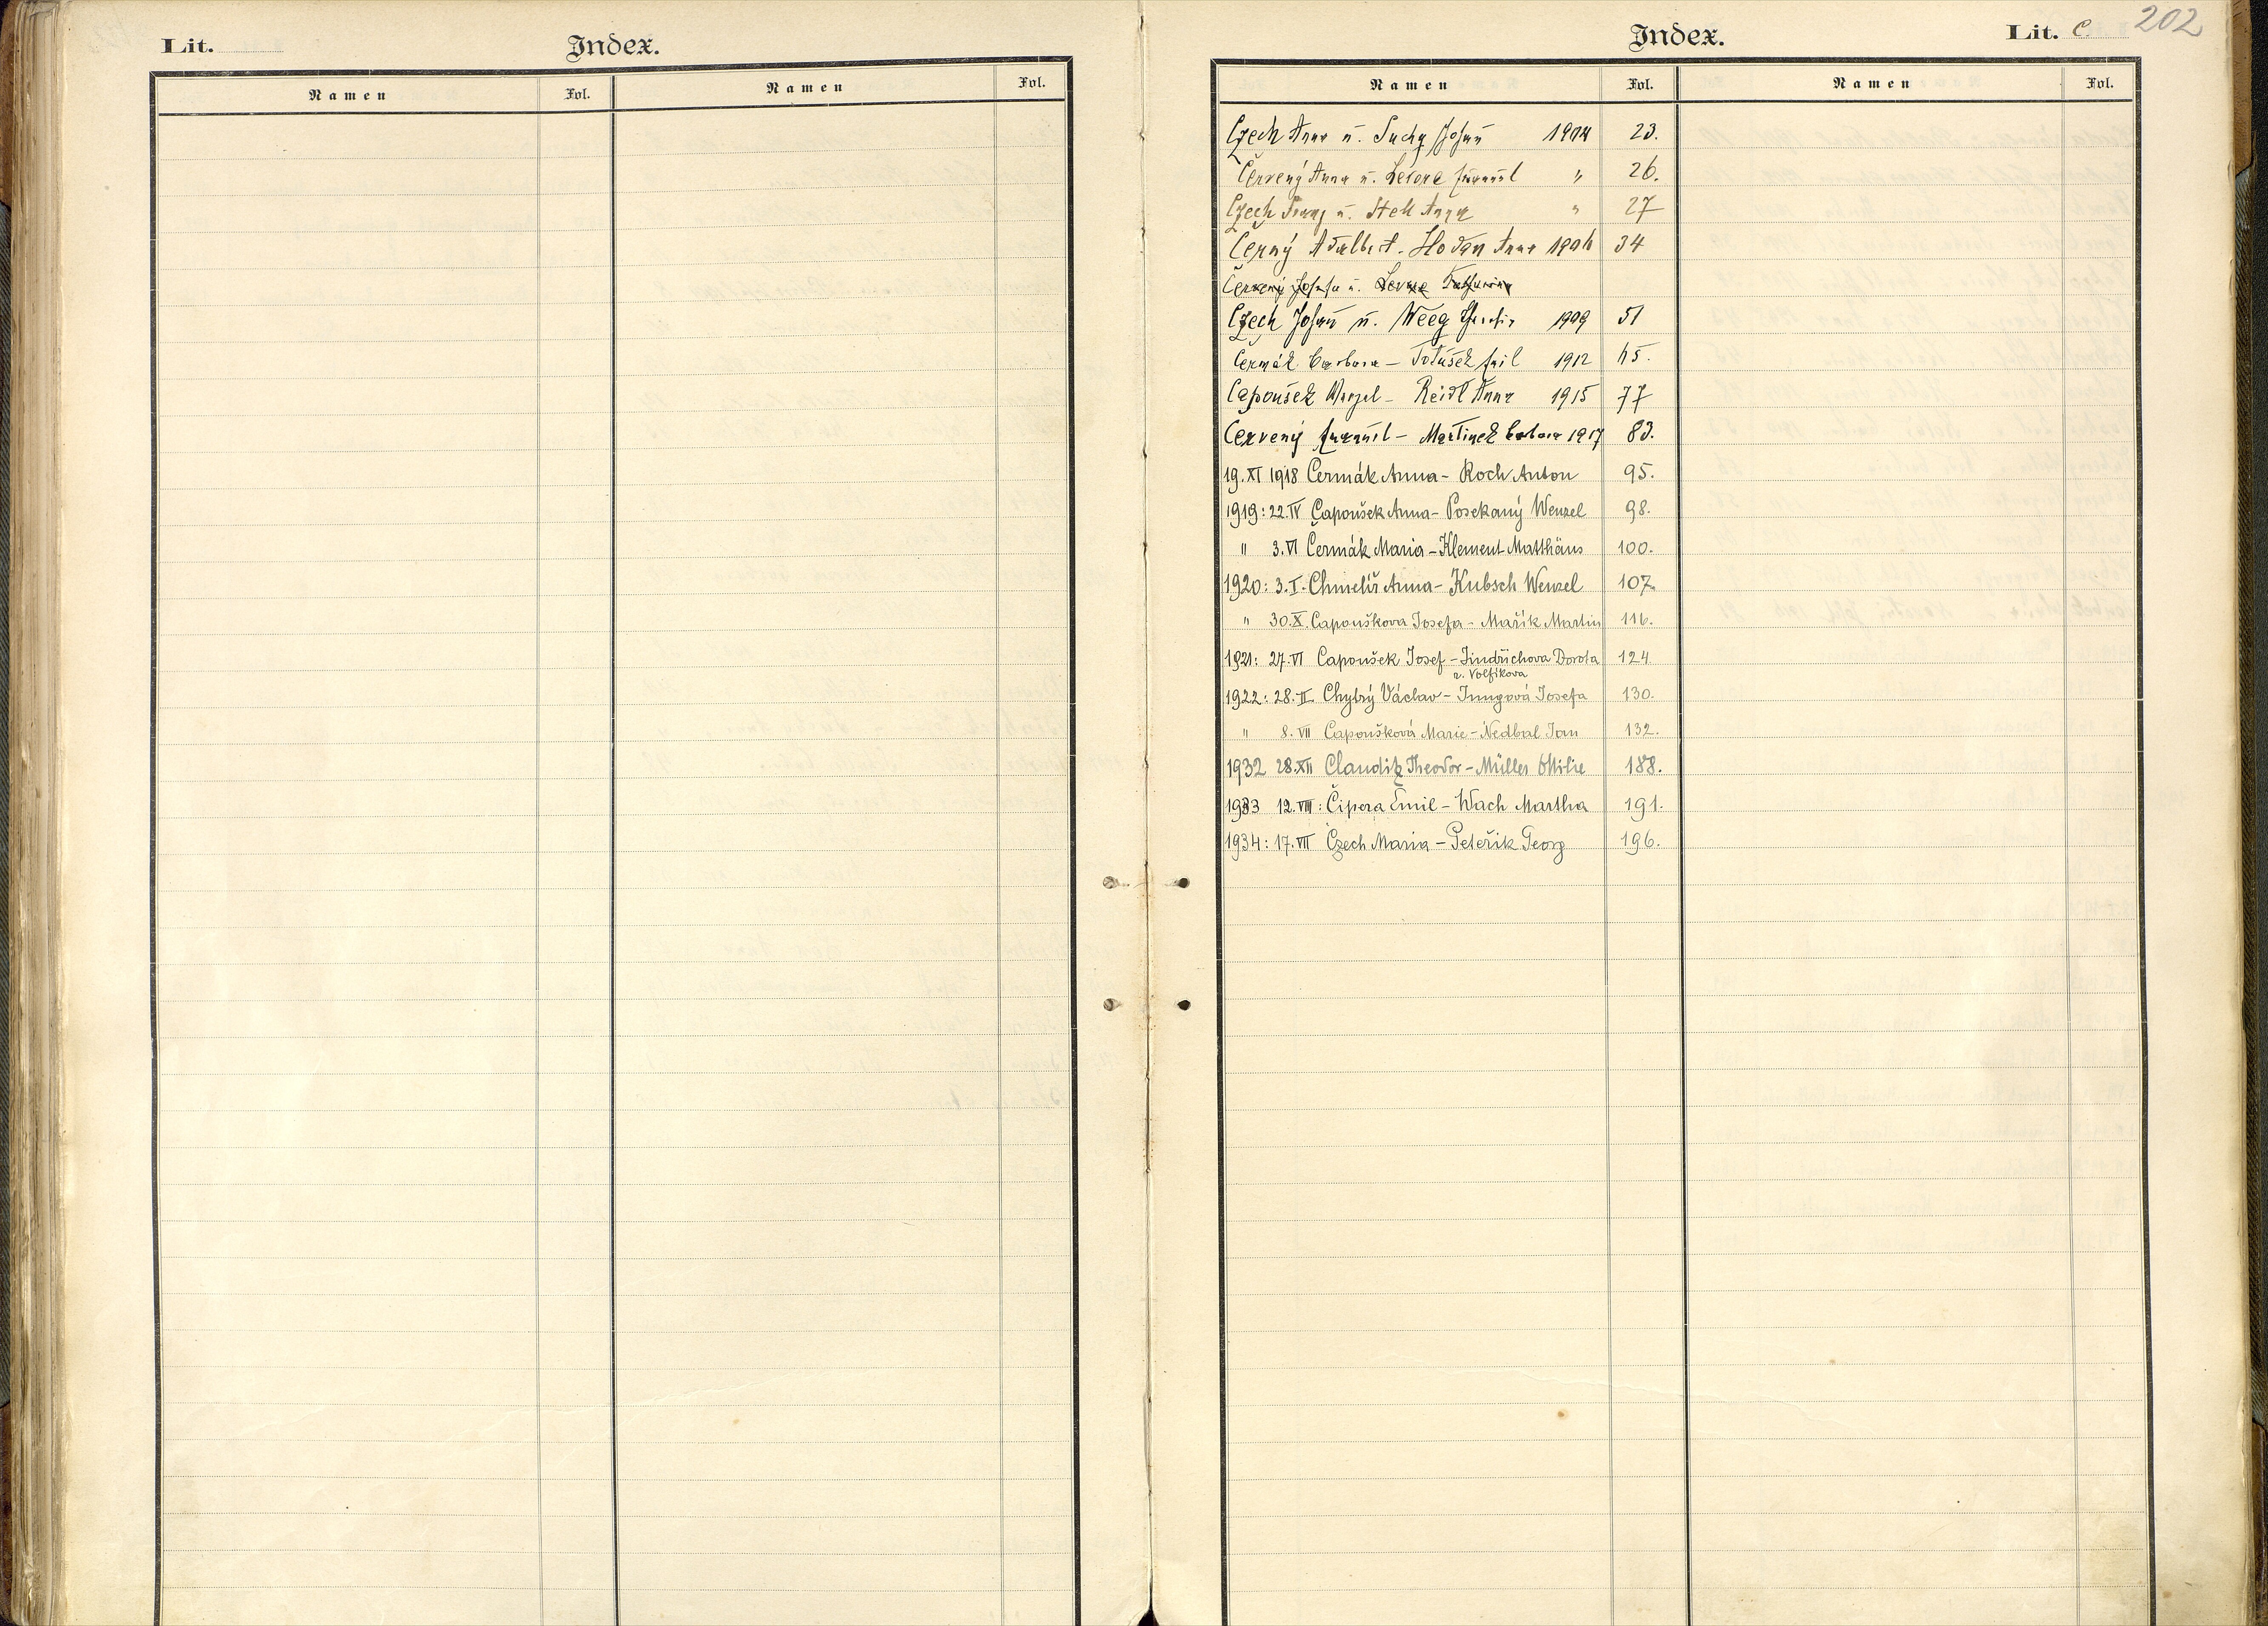 Lit.
Index.
Namen Fol. Namen Fol.
202
Index.
Lit. C.
Namen Fol. Namen Fol.
Czech Anna u. Suchy Johann 1904 23.
Červený Anna u. Emanuel " 26.
Czech Franz u. Stell Anna " 27
Černý Adalbert - Hodan Anna 34
Červený Josefa u.
Czech Johann u. Weeg 1909 51
Čermák Barbara - Totušek Emil 1912
Čapoušek Wenzel - Reidl Anna 1915 77
Červený Emanuel - Martinek Barbara 1917 83.
19.XI 1918 Čermák Anna - Koch Anton 95.
1919: 22.IV Čapoušek Anna - Posekaný Wenzel 98.
" 3.VI Čermák Maria - Klement Matthäus 100.
1920: 3.I. Chmelíř Anna - Kubsch Wenzel 107.
" 30.X. Čapouškova Josefa - Mařík Martin 116.
1921: 27.VI Čapoušek Josef - Jindřichova Dorota 124.
r. Volfíkova
1922: 28.II Chytrý Václav - Jungová Josefa 130.
" 8.VII Čapoušková Marie - Nedbal Jan 132.
1932 28.XII Clauditz Theodor - Müller Ottilie 188.
1933 12.VIII: Čipera Emil - Wach Martha 191.
1934: 17.VII Czech Maria - Peteřík Georg 196.